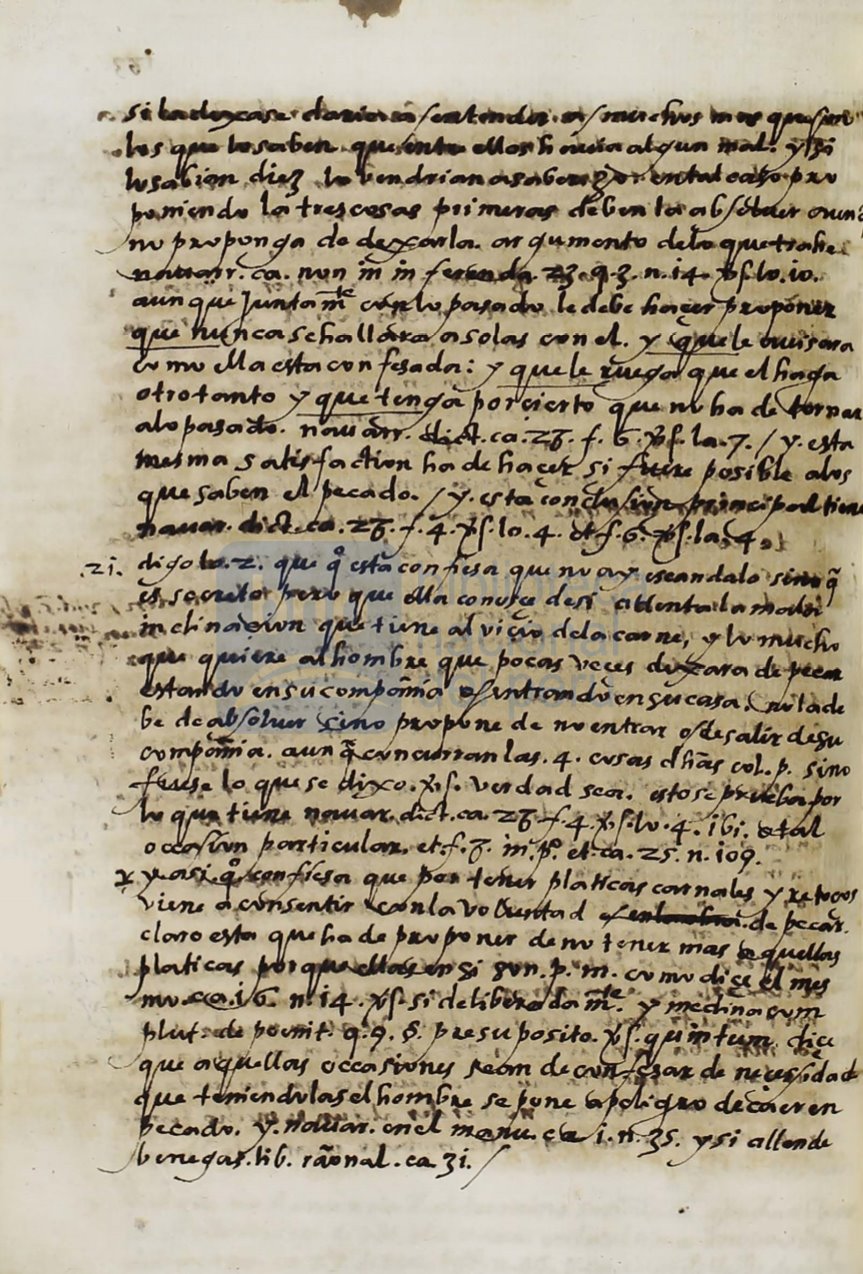 si la dexase daria a entender a muchos mas que son
los que lo saben que entre ellos havia algun mal. y si
lo sabian diez lo bendrian a saber por ental caso pro
poniendo la tres cosas primeras deben la absoluer aunq̃
no proponga de dexarla. argumento delo que trahe
nauarr. ca. non in in ferenda. 23. q. 3. n. 14. ꝟs. lo. 10.
aunque Juntamte con lo pasado le debe hacer proponer
que nunca se hallara a solas con el. y que le auisara
como ella esta confesada: y que le ruega que el haga
otro tanto y que tenga por cierto que no ha de tornar
alo pasado. nauarr. dict. ca. 27. f. 6. ꝟs. la. 7. / y. esta
mesma satisfaction ha de hacer si fuere posible alos
que saben el pecado. / y. esta conclusion principal tiene
nauar. dict. ca. 27. f. 4. ꝟs. lo. 4. et f. 6. ꝟs. la. 4.
.21. digo lo. 2. que qº esta confiesa que no ay escandalo sino q̃
es secreto pero que ella conosce de si attenta la mala
inclinacion que tiene al vicio dela carne, y lo mucho
que quiere al hombre que pocas veces dexara de pecar
estando en su compañia o entrando en su casa. no la de
be de absoluer sino propone de no entrar o de salir de su
compañia. aunq̃ concurran las. 4. cosas dhãs col. p. sino
fuese lo que se dixo. ꝟs. verdad sea. esto se prueba por
lo que tiene nauar. dict. ca. 27. f. 4. ꝟs. lo. 4. ibi. o tal
occasion particular. et. f. 7. in. pº. et. ca. 25. n. 109.
y asi qº confiesa que por tener platicas carnales y retoços
viene a consentir con la voluntad de pecar.
claro esta que ha de proponer de no tener mas aquellas
platicas porque ellas en si son. p. m. como diçe el mes
mo ca. 16. n. 14. ꝟs. si deliberadamte. y medina cum
plut. de poenit. q. 9. §. presuposito. ꝟs. quintum dice
que aquellas occasiones sean de confesar de necessidad
que teniendolas el hombre se pone a peligro de caer en
pecado. y. nauar. en el manu. ca. 1. n. 35. y si attende
benegas. lib. rãonal. ca. 31.